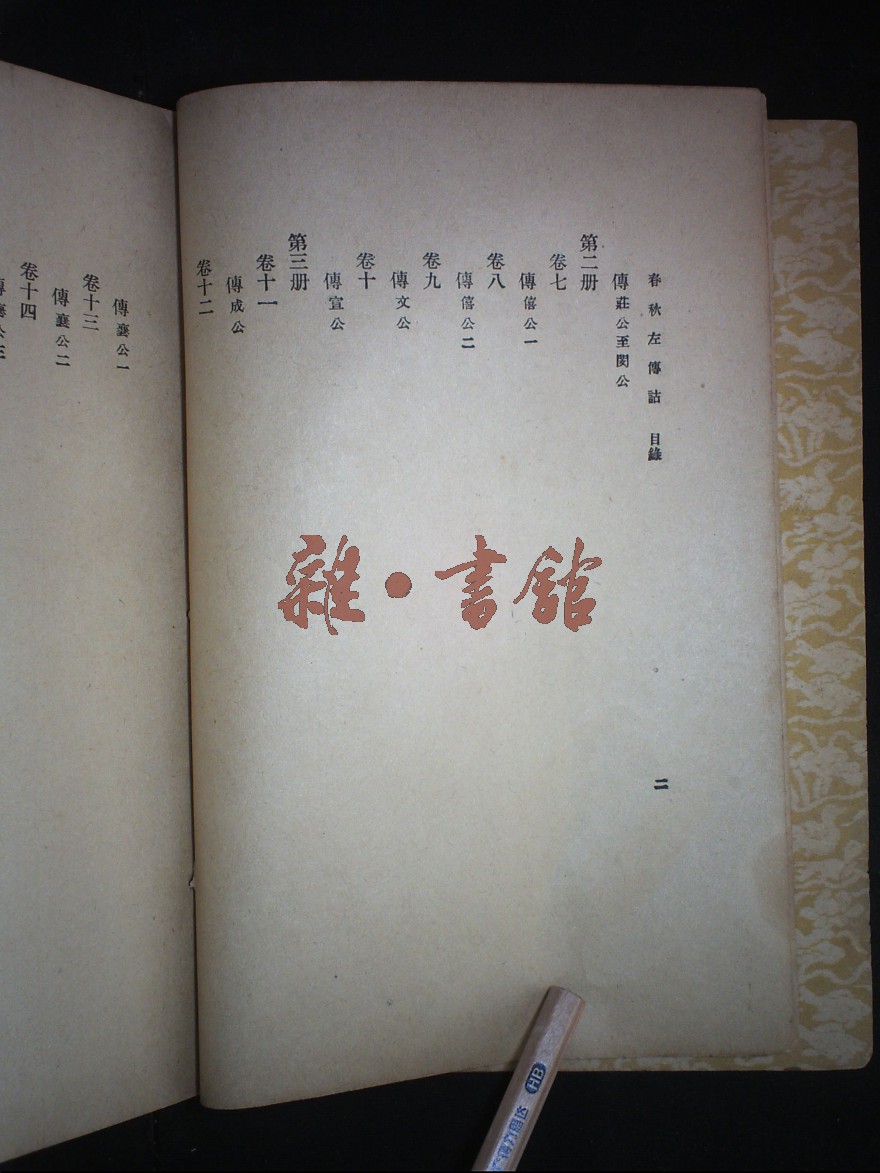 春秋左傳詁 目錄
二
傳莊公至閔公
第二册
卷七
傳僖公一
卷八
傳僖公二
卷九
傳文公
卷十
傳宣公
第三册
卷十一
傳成公
卷十二
傳襄公一
卷十三
傳襄公二
卷十四
傳襄公三
雜·書館
HB